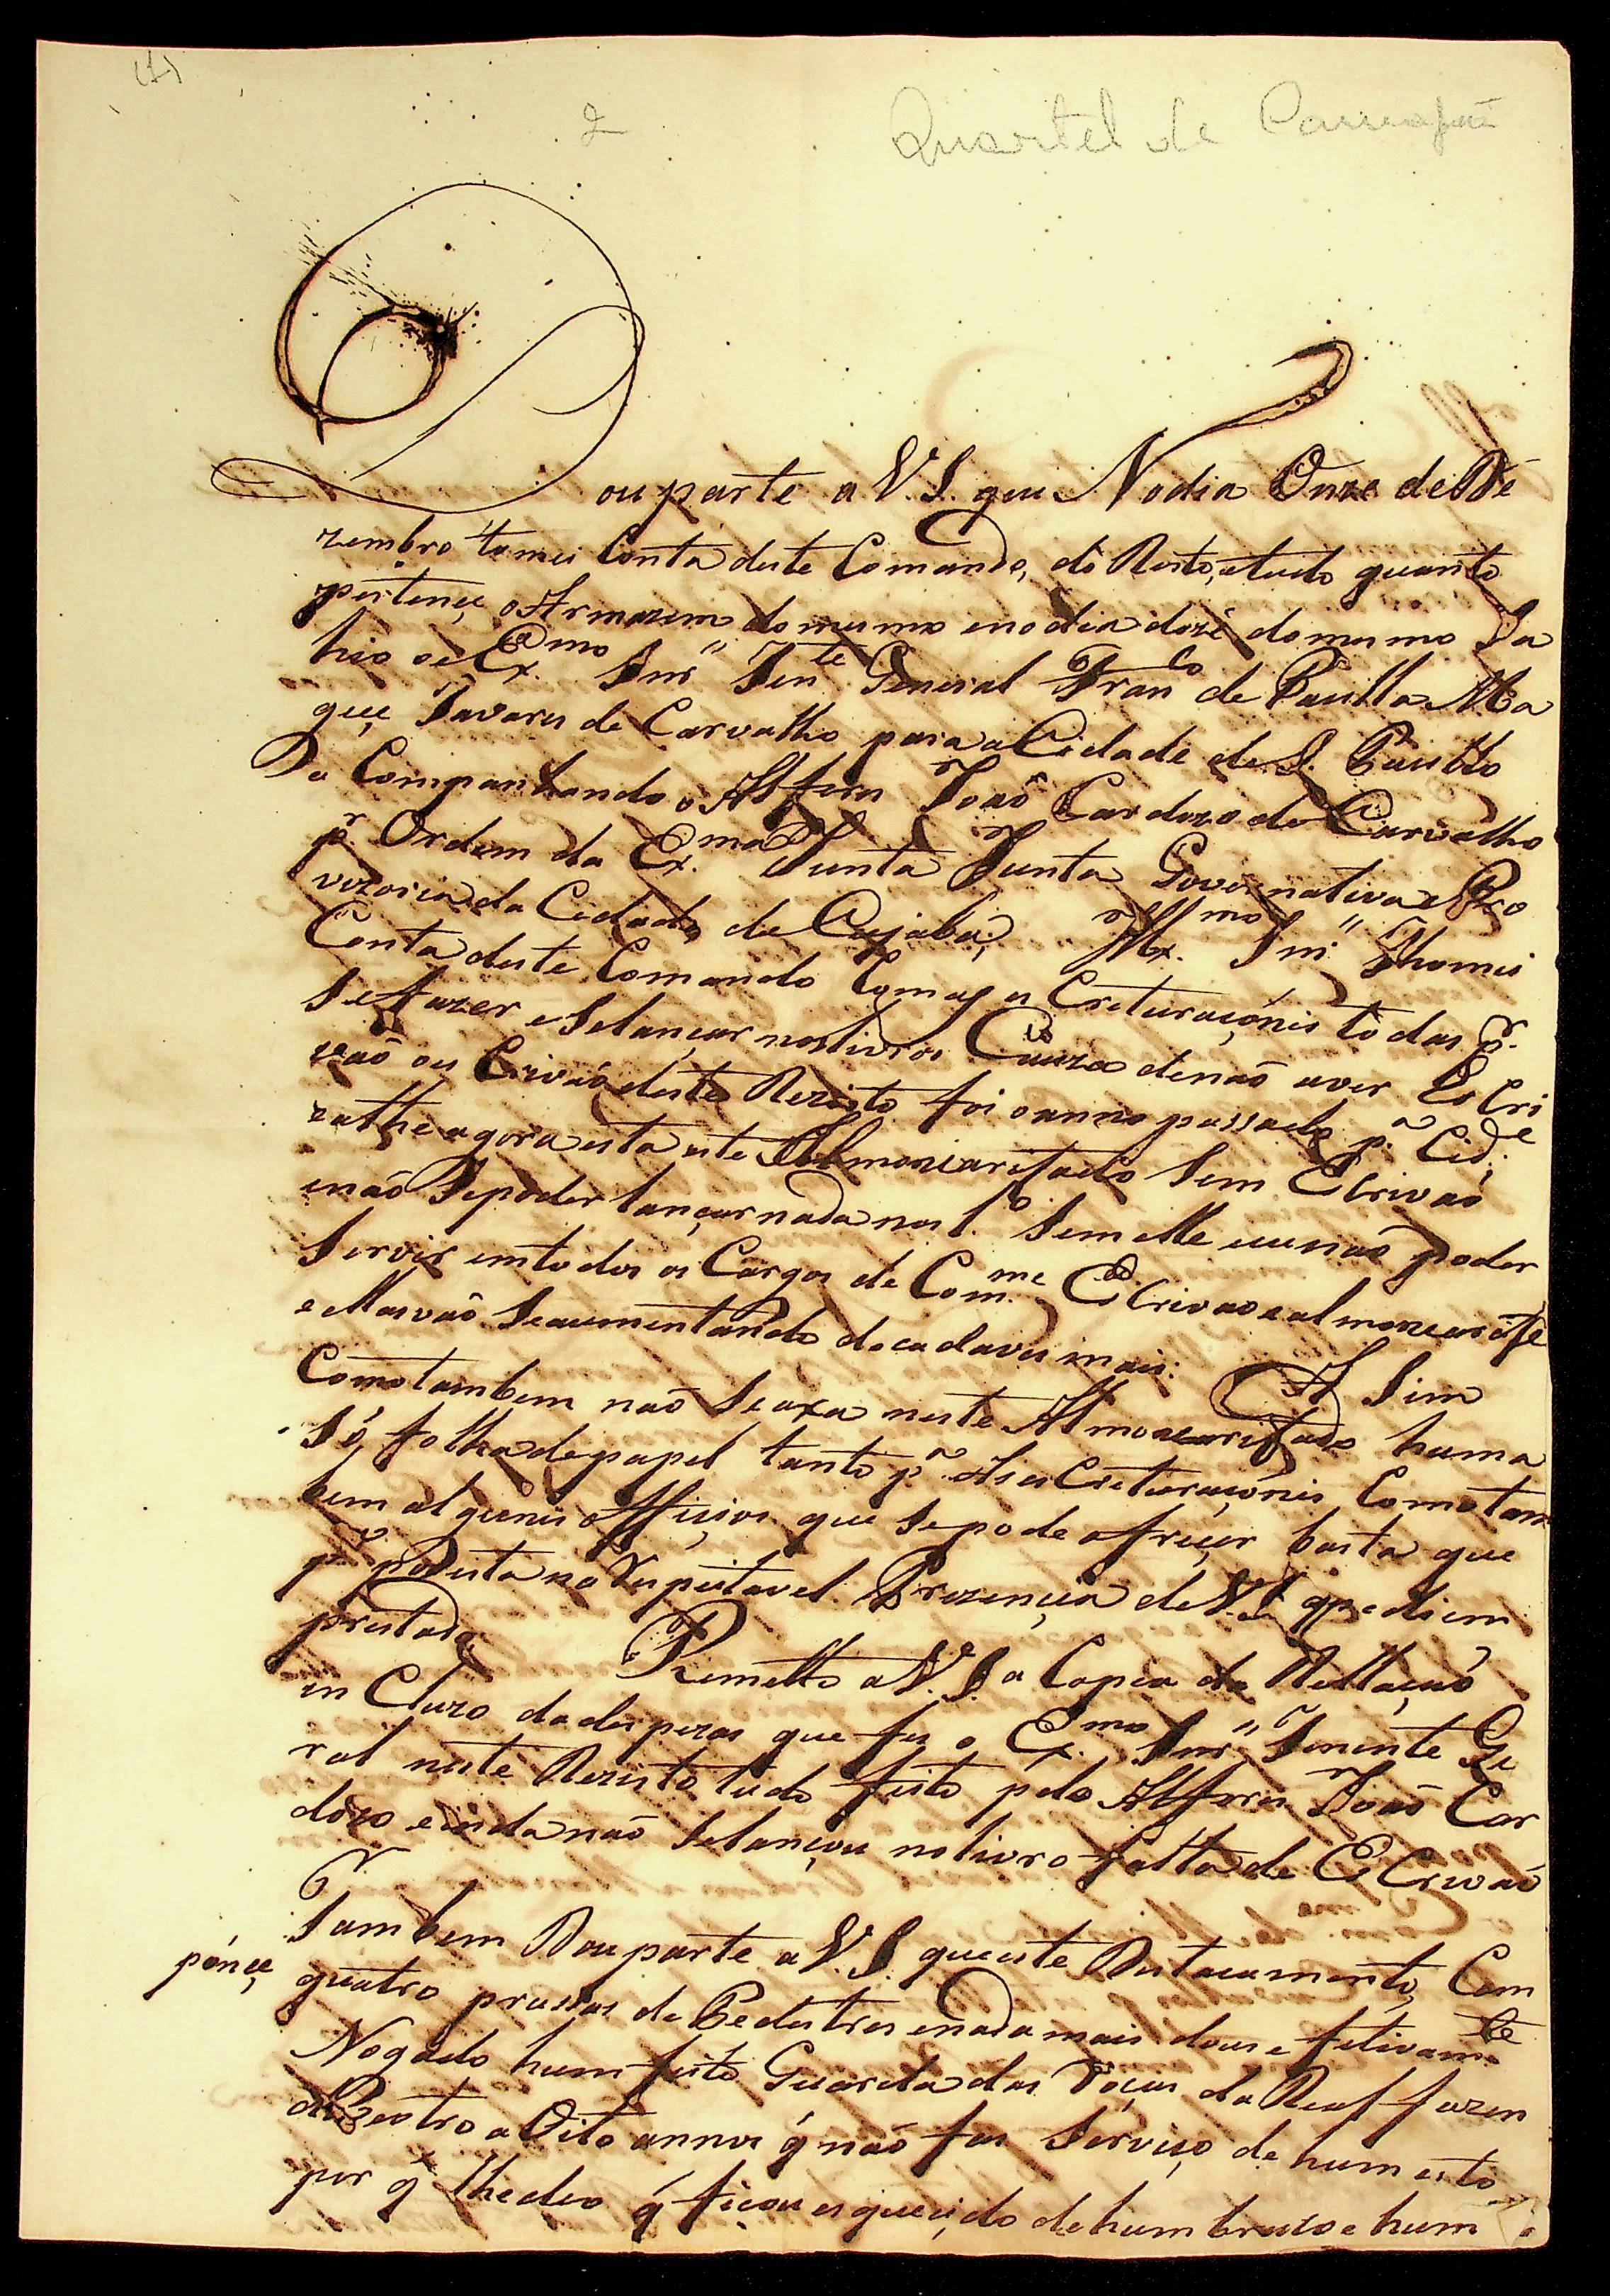 (1)
2
Quartel de
Dou parte a V. S. que No dia Onze de De
zembro tomei Conta deste Comando, do Resto, etudo quanto
pertençe o Armazem do mesmo eno dia doze do mesmo Sa
hio o Ex.mo Snr" Ten.te General Fran.co de Paulla Ma
gue Tavares de Carvalho para a Cidade de S. Paullo
Da Companhando o Alferes João Cardozo de Carvalho
p.r Ordem da Ex.ma Junta Junta Governativa Pro
vizoria da Cidade de Cujabá; Snr"
Conta deste Comando Creturaçónis todas p.r
Se fazer e Selançar nos livros Cauza denaõ aver Escri
vaõ ou Crivaõ deste Rezisto foi o anno passado p.a Cid.e
eathe agora esta este Almoxarifado Sem Ecrivaõ
enaõ Sepoder lançar nada nos l.o Sem elle eu naõ poder
Servir emtodos os Cargos de Com.me Ecrivaõ e almoxarife
e ellas vaõ Seaumentando decadaves mais: A Sim
Como tambem naõ Seaxa neste Almoxarifado huma
Só folha de papel tanto p.a As esCreturaçónis Como tam
bem alguens offiçios que Sepode ofreçer basta que
p.a por esta na Respeitavel Prezençia de V. S. q pedi em
prestado. Remetto a V. S. a Copea da Rellaçaõ
in Cluzo da despezas que fes o Ex.mo Snr" Tenente Ge
ral neste Rezisto tudo feito pelo Alferes Joaõ Car
dozo e inda naõ Selançou no livro falta de ECrivaõ
Tambem Dou parte a V. S. que este Destacamento, Com
pónçe
quatro prassas de Pedestres enada mais dous efetivam.te
Nogado hum feito Guarda das Roças da Real fazen
da outro a Oito annos q naõ fas Serviço de hum esto
por q lhe deo q ficou esqueçido de hum brazo e hum